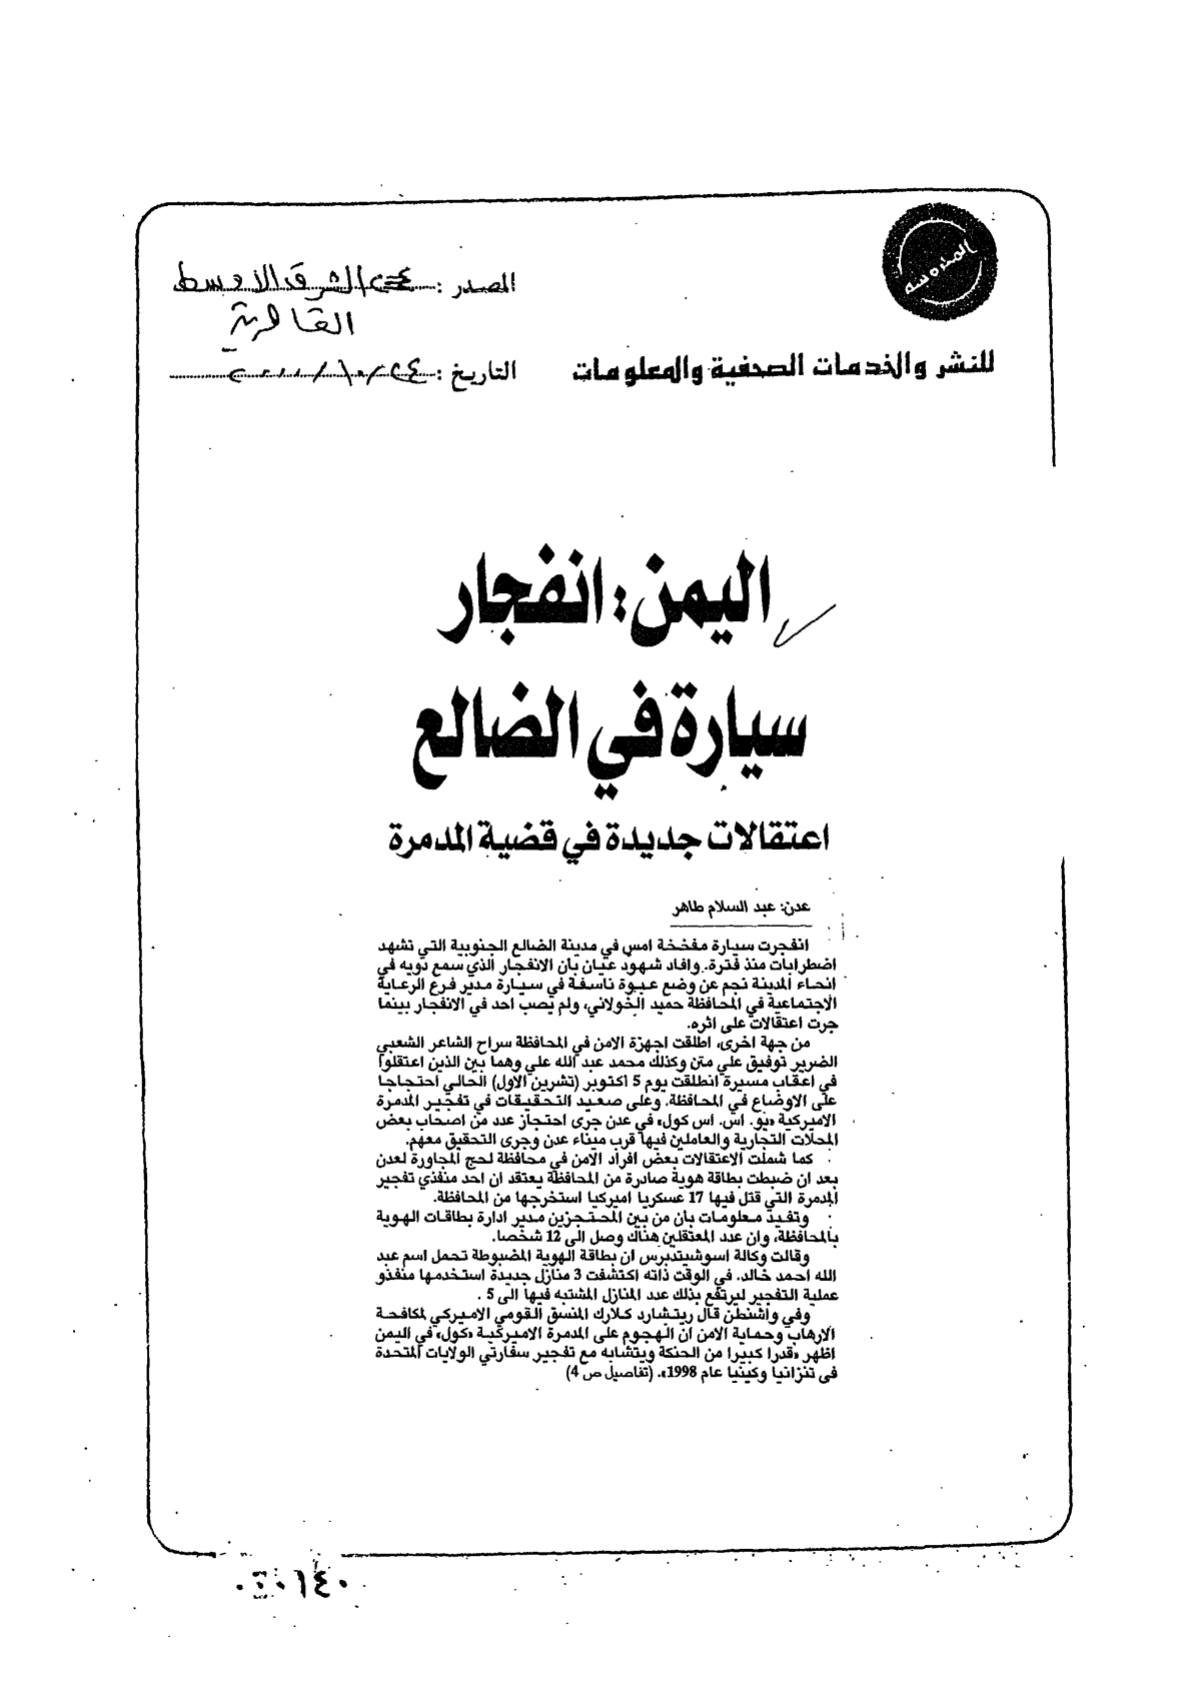 المحروسة
للنشر والخدمات الصحفية والمعلومات
المصدر : الشرق الأوسط
القاهرية
التاريخ : ٢٤/١٠/٢٠٠٠
اليمن: انفجار
سيارة في الضالع
اعتقالات جديدة في قضية المدمرة
عدن: عبد السلام طاهر
انفجرت سيارة مفخخة امس في مدينة الضالع الجنوبية التي تشهد
اضطرابات منذ فترة. وافاد شهود عيان بأن الانفجار الذي سمع دويه في
انحاء المدينة نجم عن وضع عبوة ناسفة في سيارة مدير فرع الرعاية
الاجتماعية في المحافظة حميد الخولاني، ولم يصب احد في الانفجار بينما
جرت اعتقالات على اثره.
من جهة اخرى، اطلقت اجهزة الامن في المحافظة سراح الشاعر الشعبي
الضرير توفيق علي متن وكذلك محمد عبد الله علي وهما بين الذين اعتقلوا
في اعقاب مسيرة انطلقت يوم 5 اكتوبر (تشرين الاول) الحالي احتجاجا
على الاوضاع في المحافظة. وعلى صعيد التحقيقات في تفجير المدمرة
الاميركية «يو. اس. اس كول» في عدن جرى احتجاز عدد من اصحاب بعض
المحلات التجارية والعاملين فيها قرب ميناء عدن وجرى التحقيق معهم.
كما شملت الاعتقالات بعض افراد الامن في محافظة لحج المجاورة لعدن
بعد ان ضبطت بطاقة هوية صادرة من المحافظة يعتقد ان احد منفذي تفجير
المدمرة التي قتل فيها 17 عسكريا اميركيا استخرجها من المحافظة.
وتفيد معلومات بأن من بين المحتجزين مدير ادارة بطاقات الهوية
بالمحافظة، وان عدد المعتقلين هناك وصل الى 12 شخصا.
وقالت وكالة اسوشيتدبرس ان بطاقة الهوية المضبوطة تحمل اسم عبد
الله احمد خالد. في الوقت ذاته اكتشفت 3 منازل جديدة استخدمها منفذو
عملية التفجير ليرتفع بذلك عدد المنازل المشتبه فيها الى 5 .
وفي واشنطن قال ريتشارد كلارك المنسق القومي الاميركي لمكافحة
الارهاب وحماية الامن ان الهجوم على المدمرة الاميركية «كول» في اليمن
اظهر «قدرا كبيرا من الحنكة ويتشابه مع تفجير سفارتي الولايات المتحدة
في تنزانيا وكينيا عام 1998». (تفاصيل ص 4)